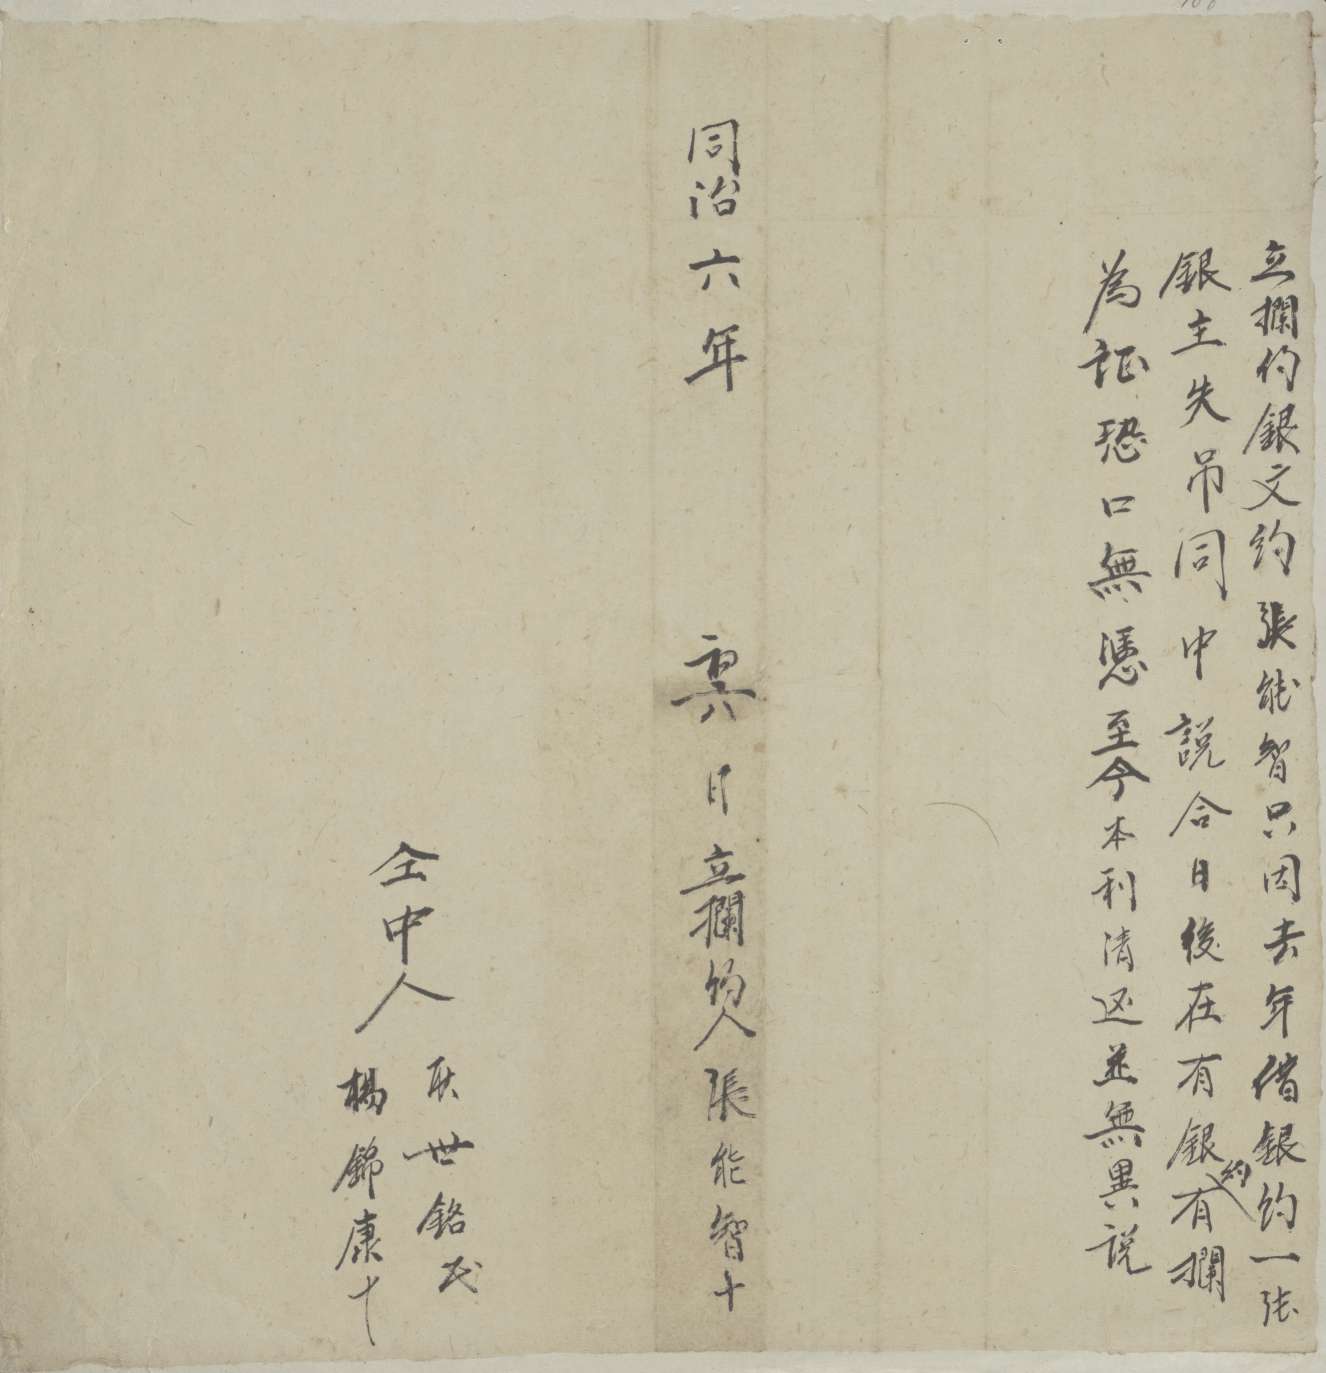 立攔約銀文約張能智只因去年借銀約一張
銀主失吊同中説合日後在有銀約有攔
為証恐口無憑至今本利清还並無異説
同治六年 初六日立攔約人張能智十
仝中人
耿世銘
楊錦康十